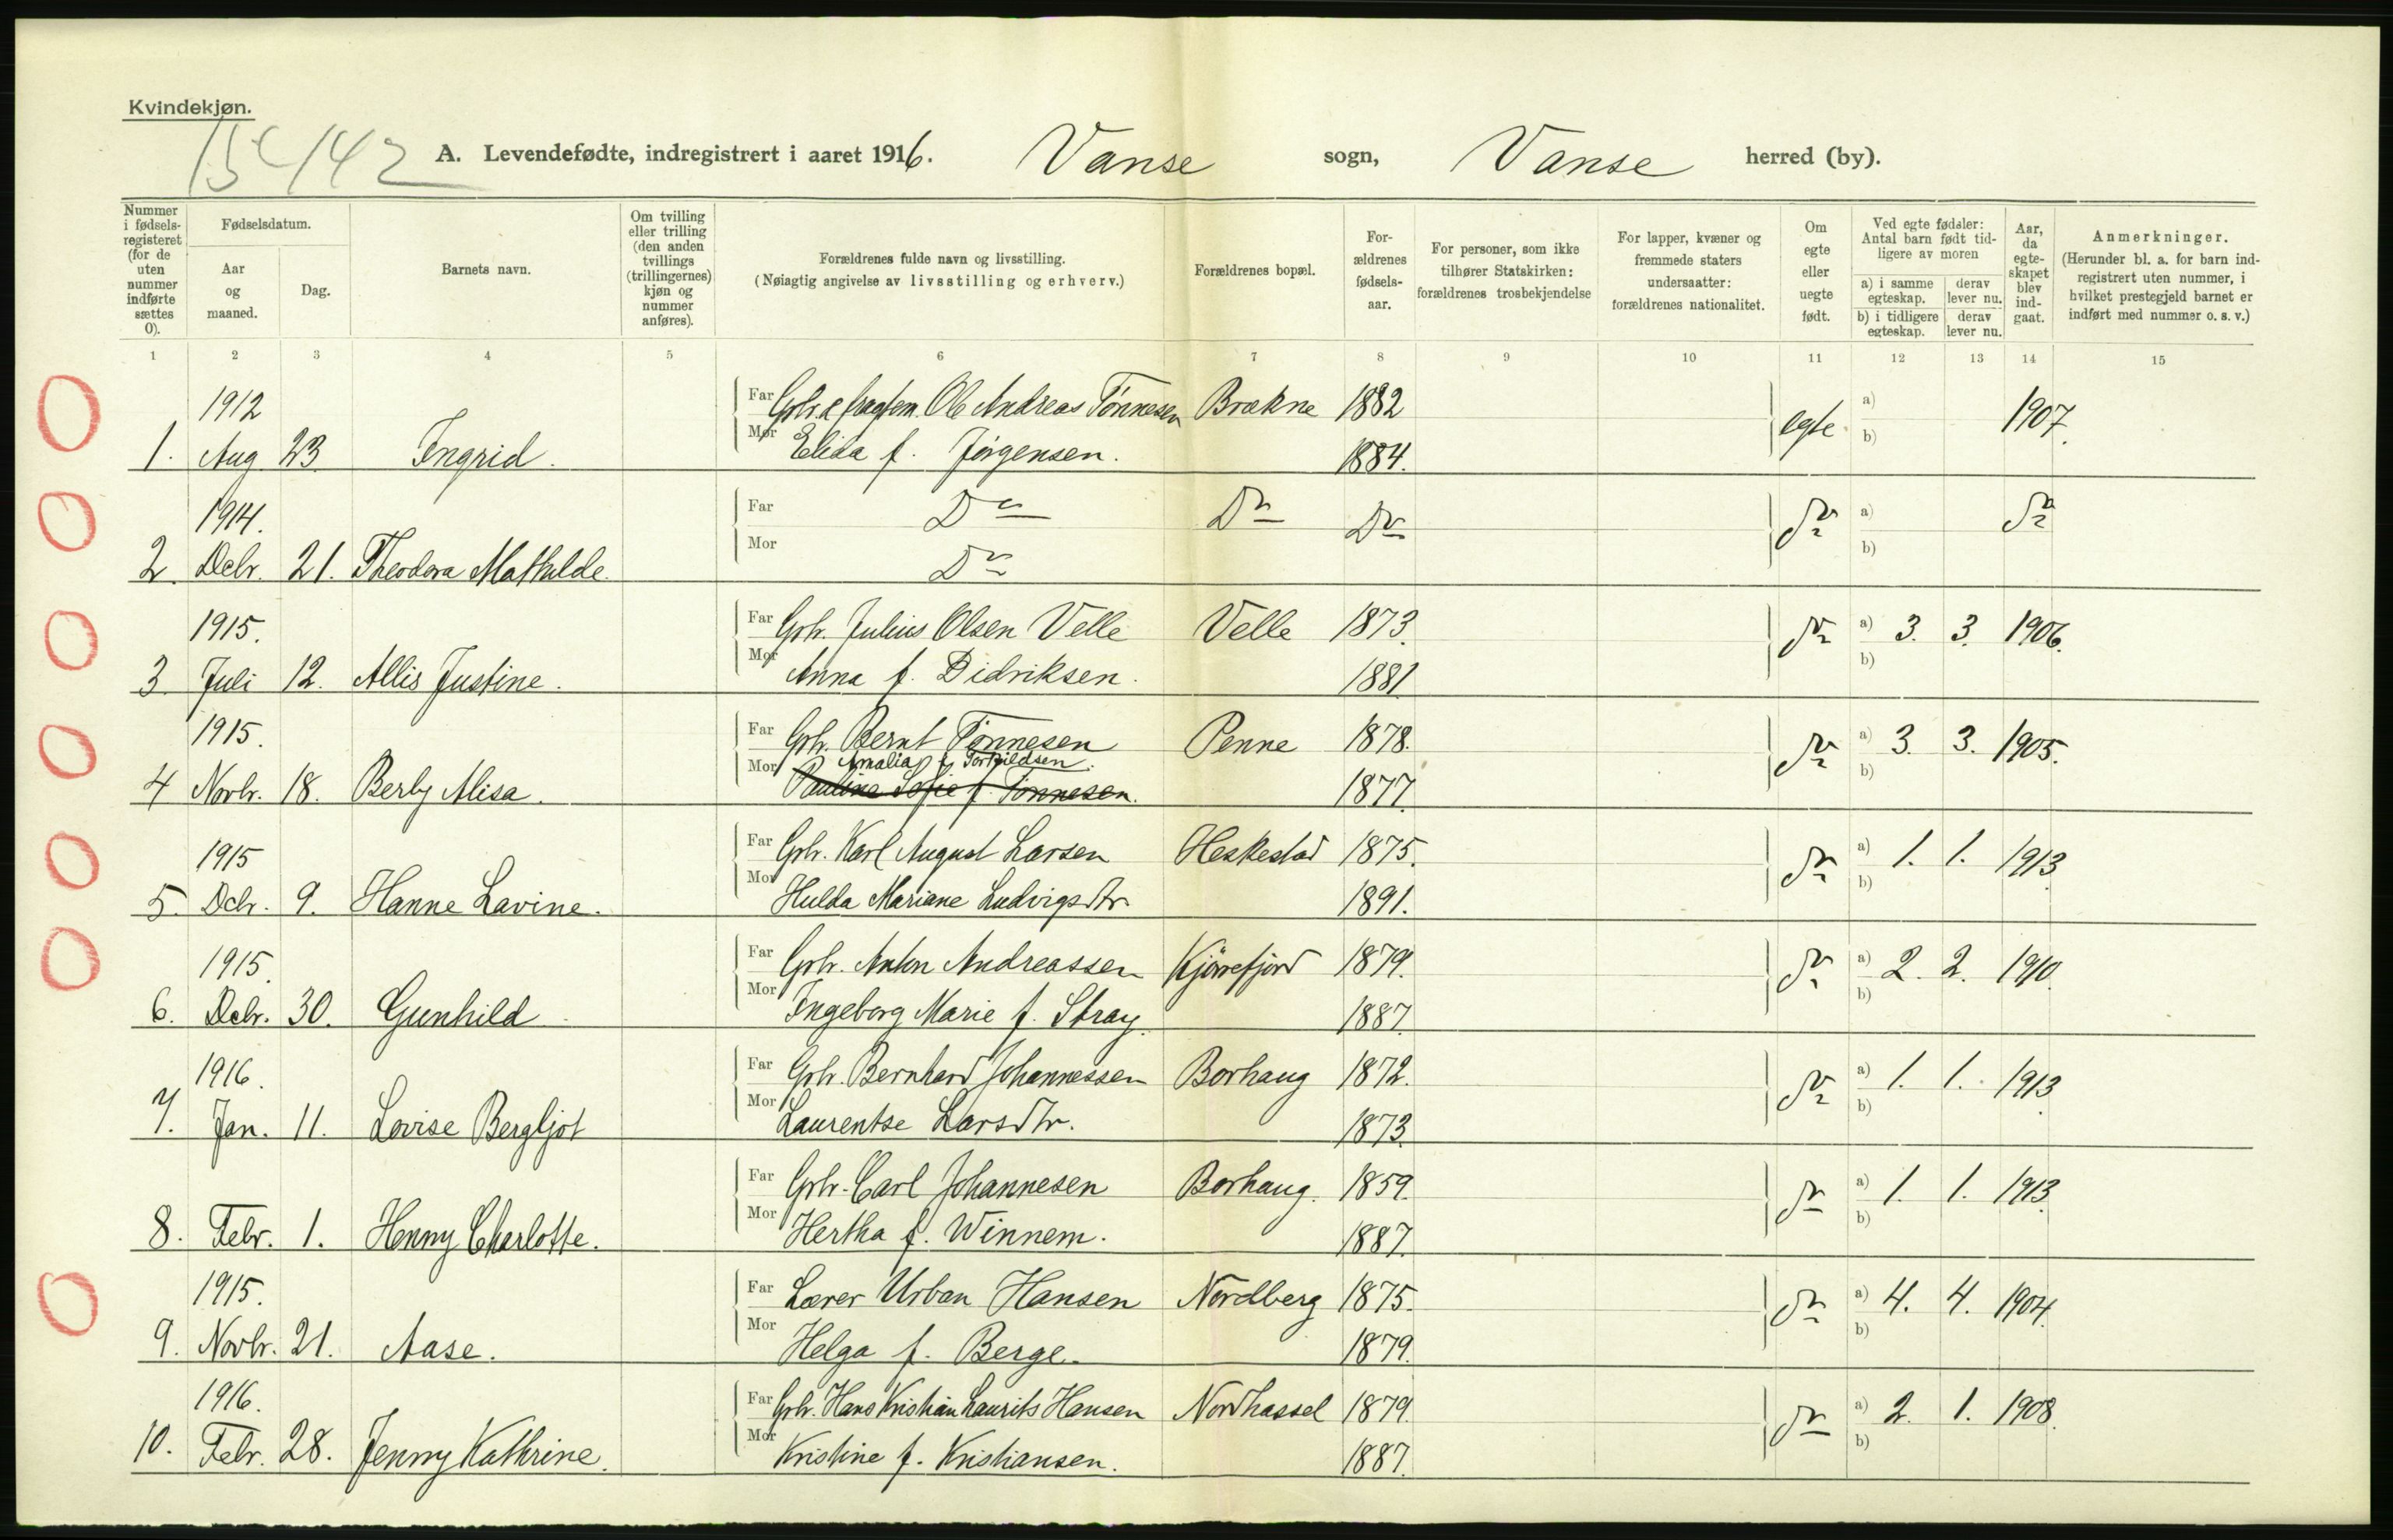 Kvindekjøn.
A. Levendefødte, indregistrert i aaret 1916. Vanse sogn, Vanse herred (by).
Nummer i fødsels-registeret (for de uten nummer indførte sættes 0).
Fødselsdatum.
Aar og maaned.
Dag.
Barnets navn.
Om tvilling eller trilling (den anden tvillings (trillingernes) kjøn og nummer anføres).
Forældrenes fulde navn og livsstilling.
(Nøiagtig angivelse av livsstilling og erhverv.)
Forældrenes bopæl.
For-ældrenes fødsels-aar.
For personer, som ikke tilhører Statskirken: forældrenes trosbekjendelse
For lapper, kvæner og fremmede staters undersaatter: forældrenes nationalitet.
Om egte eller uegte født.
Ved egte fødsler: Antal barn født tid-ligere av moren
a) i samme egteskap. derav lever nu.
b) i tidligere egteskap. derav lever nu.
Aar, da egte-skapet blev ind-gaat.
Anmerkninger.
(Herunder bl. a. for barn ind-registrert uten nummer, i hvilket prestegjeld barnet er indført med nummer o. s. v.)
1 2 3 4 5 6 7 8 9 10 11 12 13 14 15
1912 Far Ole Andreas Tönnesen Brækne 1882 egte a) b) 1907.
1. Aug 23 Ingrid. Mor Elida f. Jörgensen. 1884.
1914. Far Do Do Do do a) b) do
2. Decbr. 21. Theodora Mathilde. Mor Do
1915. Far Grbr. Julius Olsen Velle Velle 1873. do a) 3. 3. 1906. b)
3. Juli 12. Allis Justine. Mor Anna f. Didriksen. 1881
1915. Far Grbr. Bernt Tönnesen Penne 1878. do a) 3. 3. 1905. b)
Amalia f. Torkildsen.
4 Novbr. 18. Berly Alisa. Mor Pauline Sofie f. Tönnesen. 1877
1915 Far Grbr. Karl August Larsen Heskestad 1875. do a) 1. 1. 1913 b)
5. Decbr. 9. Hanne Lavine. Mor Hulda Mariane Ludvigsdtr. 1891.
1915 Far Grbr. Anton Andreassen Kjörrefjord 1879. do a) 2. 2. 1910. b)
6. Decbr. 30. Gunhild Mor Ingeborg Marie f. Stray. 1887.
1916. Far Grbr. Bernhard Johannessen Borhaug 1872. do a) 1. 1. 1913 b)
7. Jan. 11. Lovise Bergljot Mor Laurentse Larsdtr. 1873.
Far Grbr. Carl Johannesen Borhaug. 1859. do a) 1. 1. 1913. b)
8. Febr. 1. Henny Charlotte. Mor Hertha f. Winnem. 1887.
1915. Far Lærer Urban Hansen Nordberg 1875. do a) 4. 4. 1904. b)
9. Novbr. 21. Aase. Mor Helga f. Berge. 1879.
1916. Far Grbr. Hans Kristian Laurits Hansen Nordhassel 1879. do a) 2. 1. 1908. b)
10. Febr. 28. Jenny Kathrine. Mor Kristine f. Kristiansen. 1887.